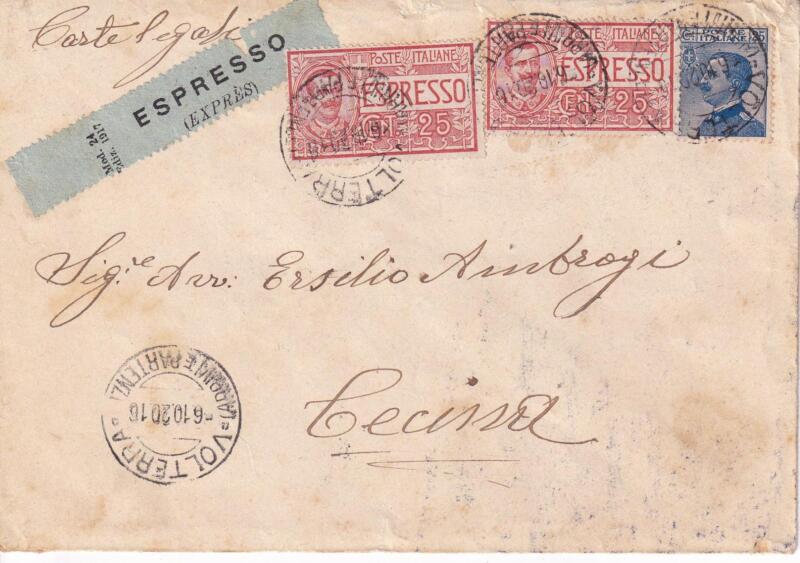 Carte legali
ESPRESSO
(EXPRÈS)
Mod. 24
Ediz. 1917
POSTE ITALIANE
ESPRESSO
CENT. 25
POSTE ITALIANE
ESPRESSO
CENT. 25
POSTE
ITALIANE
Sig.re Avv: Ersilio Ambrogi
Cecina
VOLTERRA
(ARRIVI E PARTENZE)
-6.10.20.16
VOLTERRA